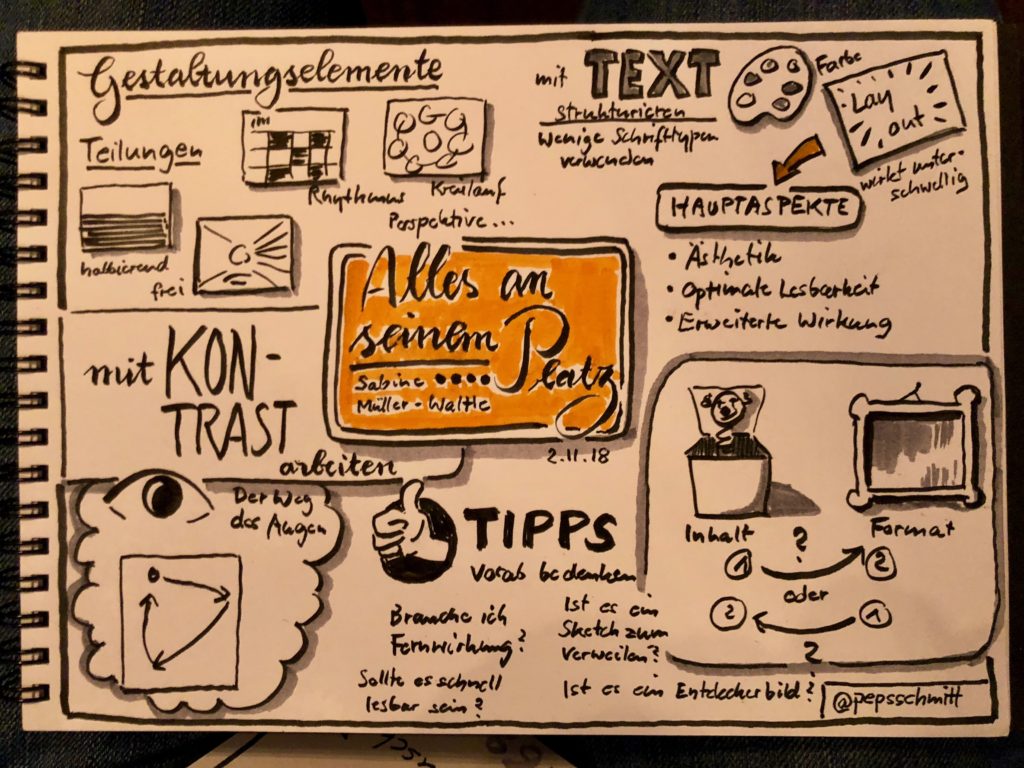 Gestaltungselemente
Teilungen
halbierend
frei
im
Rhythmus
Kreislauf
Perspektive...
mit TEXT
strukturieren
Wenige Schrifttypen
verwenden
Farbe
Lay
out
wirkt unter-
schwellig
HAUPTASPEKTE
• Ästhetik
• Optimale Lesbarkeit
• Erweiterte Wirkung
Alles an
seinem Platz
Sabine
Müller-Waltle
2.11.18
mit KON-
TRAST
arbeiten
Der Weg
des Auges
TIPPS
Vorab bedenken
Brauche ich
Fernwirkung?
Sollte es schnell
lesbar sein?
Ist es ein
Sketch zum
Verweilen?
Ist es ein Entdeckerbild?
Inhalt
Format
?
1 2
oder
2 1
?
@pepsschmitt